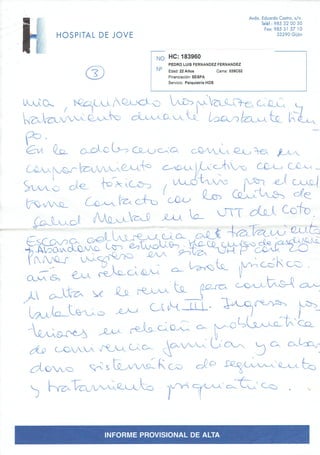 Avda. Eduardo Castro, s/n.
Telf.: 985 32 00 50
Fax: 985 31 57 10
33290 Gijón
HOSPITAL DE JOVE
NO HC: 183960
PEDRO LUIS FERNANDEZ FERNANDEZ
Nº Edad: 22 Años Cama: 0380S2
Financiación: SESPA
Servicio: Psiquiatría HDS
3
mia, requiriendo hospitalización y
tratamiento durante bastante tiem
po.
En la adolescencia comienza un
comportamiento conflictivo con con
sumo de tóxicos, motivo por el cual
toma contacto con los Centros de
Salud Mental en la UTT del Coto.
Escasa adherencia al tratamiento
Abandono los estudios, hace curso de
Primer ingreso en esta UHP con 20
años en relación a brote psicótico.
Al alta se le remite para control am
bulatorio en CSM III. Ingresos pos
teriores en relación a problemática
de convivencia familiar y a aban
dono sistemático de seguimiento
y tratamiento psiquiátrico.
INFORME PROVISIONAL DE ALTA